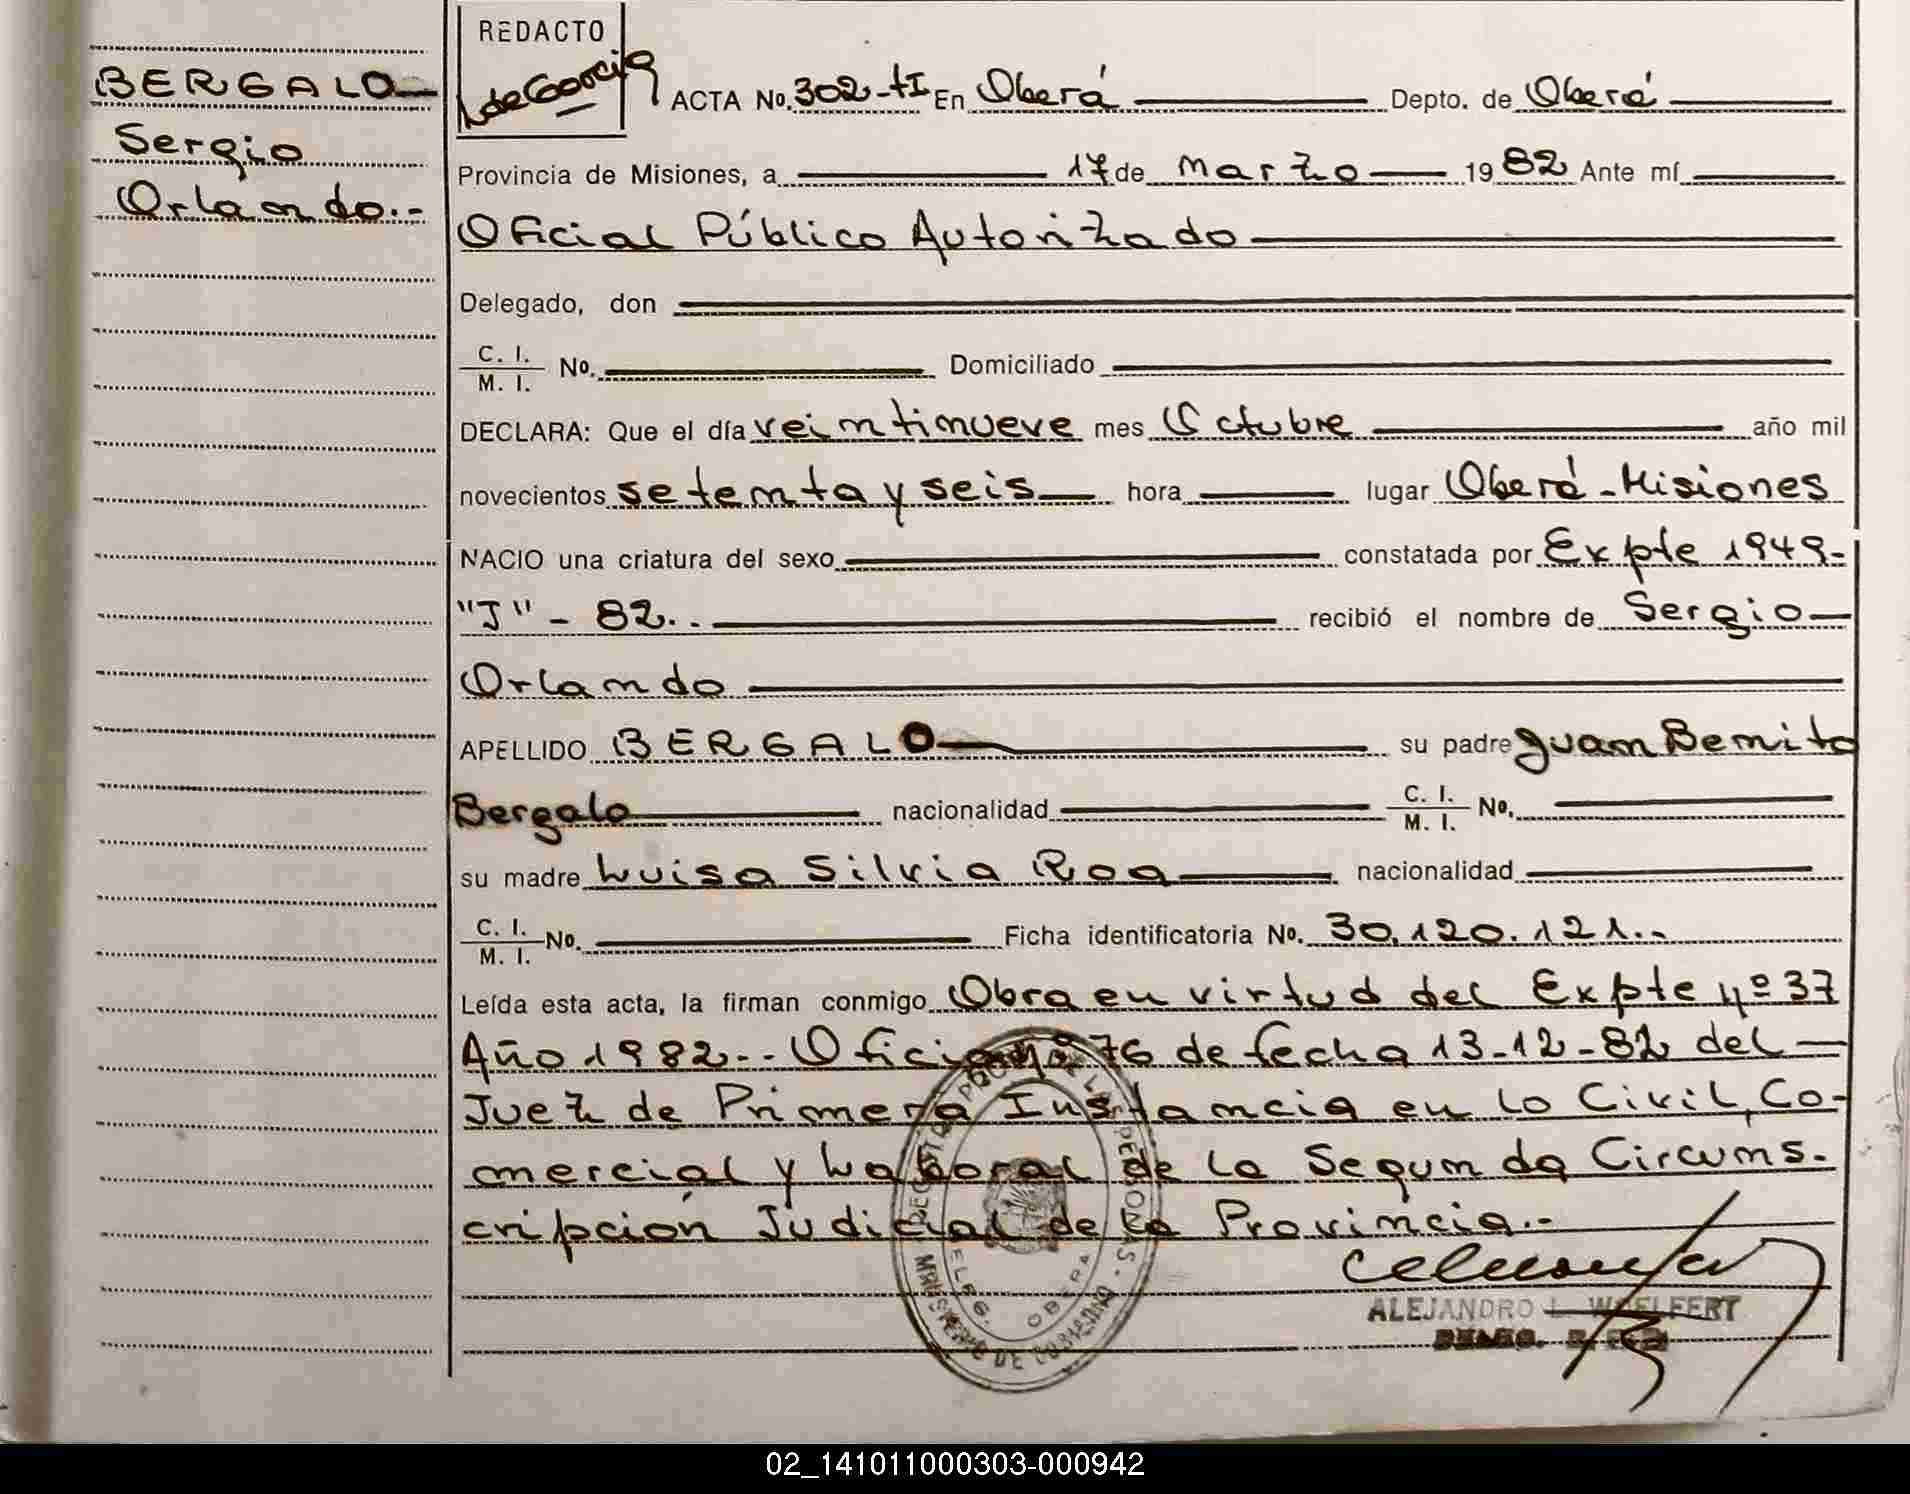 BERGALO
Sergio
Orlando.-
REDACTO
de Garcia
ACTA No. 302-tI En Oberá Depto. de Oberá
Provincia de Misiones, a 17 de Marzo 1982 Ante mí
Oficial Público Autorizado
Delegado, don
C. I.
M. I. No. Domiciliado
DECLARA: Que el día veintinueve mes Octubre año mil
novecientos setenta y seis hora lugar Oberá-Misiones
NACIO una criatura del sexo constatada por Expte 1949-
"J" - 82.. recibió el nombre de Sergio
Orlando
APELLIDO BERGALO su padre Juan Benito
Bergalo nacionalidad C. I.
M. I. No.
su madre Luisa Silvia Roa nacionalidad
C. I.
M. I. No. Ficha identificatoria No. 30.120.121.-
Leída esta acta, la firman conmigo Obra en virtud del Expte Nº 37
Año 1982.- Oficio Nº 76 de fecha 13-12-82 del
Juez de Primera Instancia en lo Civil, Co-
mercial y Laboral de la Segunda Circuns-
cripción Judicial de la Provincia.-
DELEG. OBERA
MINISTERIO DE GOBIERNO
ALEJANDRO L. WOELFERT
02_141011000303-000942